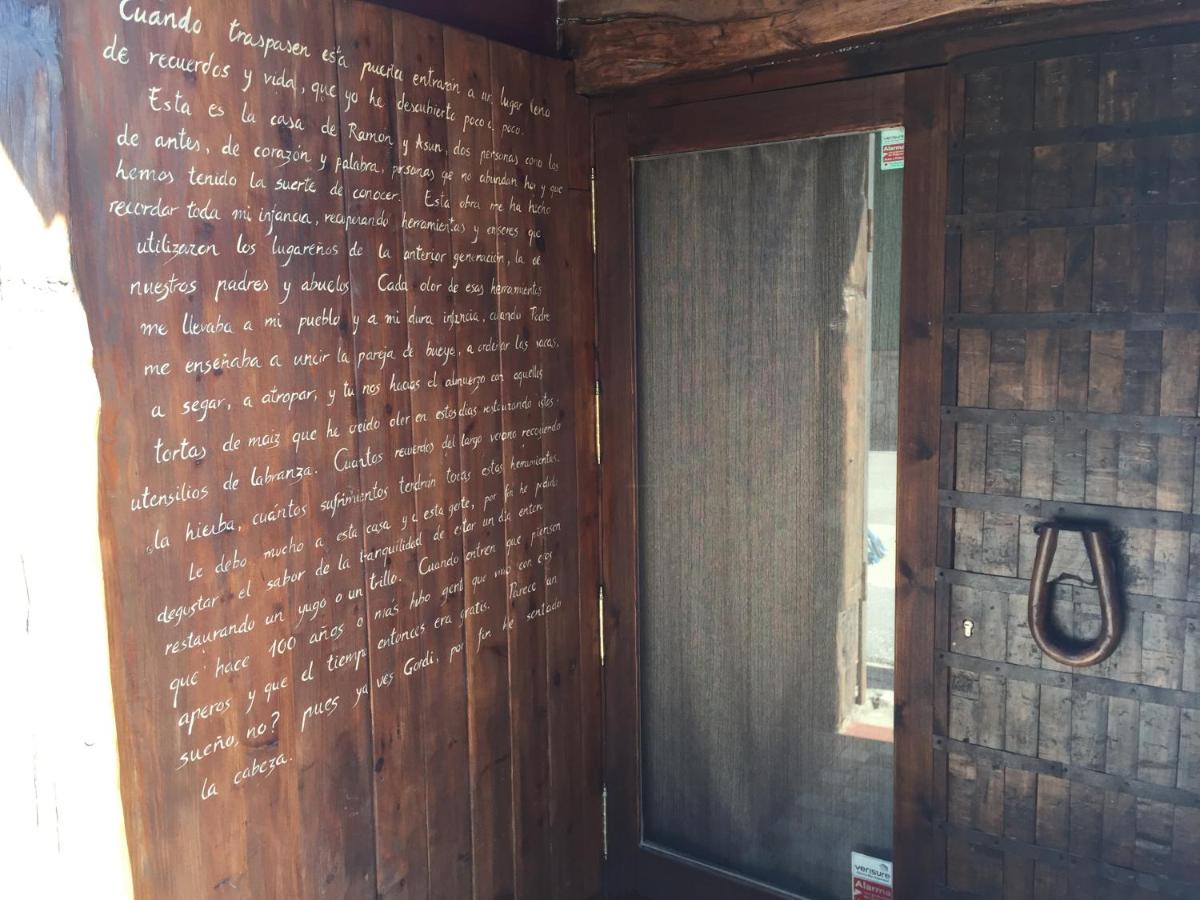 Cuando traspasen esta puerta entrarán a un lugar lleno
de recuerdos y vida, que yo he descubierto poco a poco.
Esta es la casa de Ramon y Asun, dos personas como las
de antes, de corazón y palabra, personas qe no abundan hoy y que
hemos tenido la suerte de conocer. Esta obra me ha hecho
recordar toda mi infancia, recuperando herramientas y enseres que
utilizaron los lugareños de la anterior generación, la de
nuestros padres y abuelos. Cada olor de esas herramientas
me llevaba a mi pueblo y a mi dura infancia, cuando Padre
me enseñaba a uncir la pareja de bueyes, a ordeñar las vacas,
a segar, a atropar, y tu nos hacias el almuerzo con aquellas
tortas de maiz que he creido oler en estos dias restaurando estos
utensilios de labranza. Cuantos recuerdos del largo verano recogiendo
la hierba, cuántos sufrimientos tendrán todas estas herramientas.
Le debo mucho a esta casa y a esta gente, por fin he podido
degustar el sabor de la tranquilidad de estar un día entero
restaurando un yugo o un trillo. Cuando entren que piensen
que hace 100 años o más hubo gent que vivió con esos
aperos y que el tiempo entonces era gratis. Parece un
sueño, no? pues ya ves Gordi, por fin he sentado
la cabeza.
verisure
Alarma
verisure
Alarma